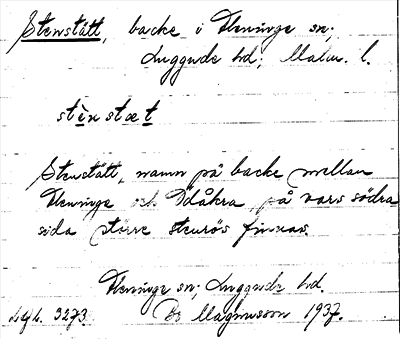 Stenstätt, backe i Fleninge sn;
Luggude hd; Malm. l.
stènstæt
Stenstätt, namn på backe mellan
Fleninge och Ödåkra, på vars södra
sida större stenrös finnas.
Fleninge sn; Luggude hd.
3273. Bs Magnusson 1937.